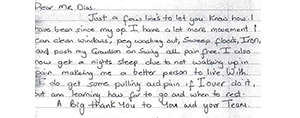 Dear Mr Dias.
Just a few line's to let you know how I
have been since my op. I have a lot more movement I
can clean windows, peg washing out, Sweep floors, Iron,
and push my Grandson on Swing all pain free. I also
now get a nights sleep due to not waking up in
pain making me a better person to live with.
I do get some pulling and pain if I over do it,
but am learning how far to go and when to rest.
A Big thank You to You and your Team.